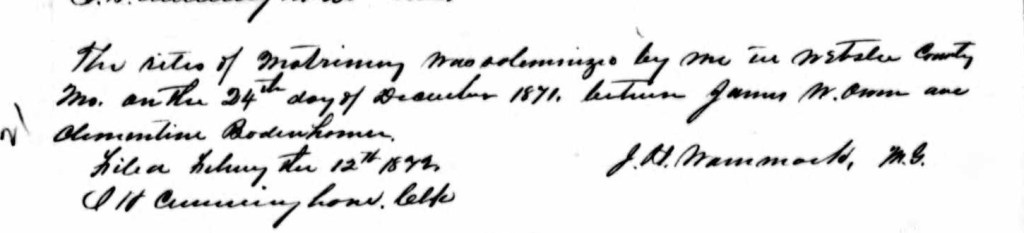 The rites of Matrimony was solemnized by me in Webster County
Mo. on the 24th day of December 1871. between James W. Owen and
Clementine Bodenhamer.
Filed Febuy the 12th 1872
J. H. Wammack, M.G.
Cunningham. Clk